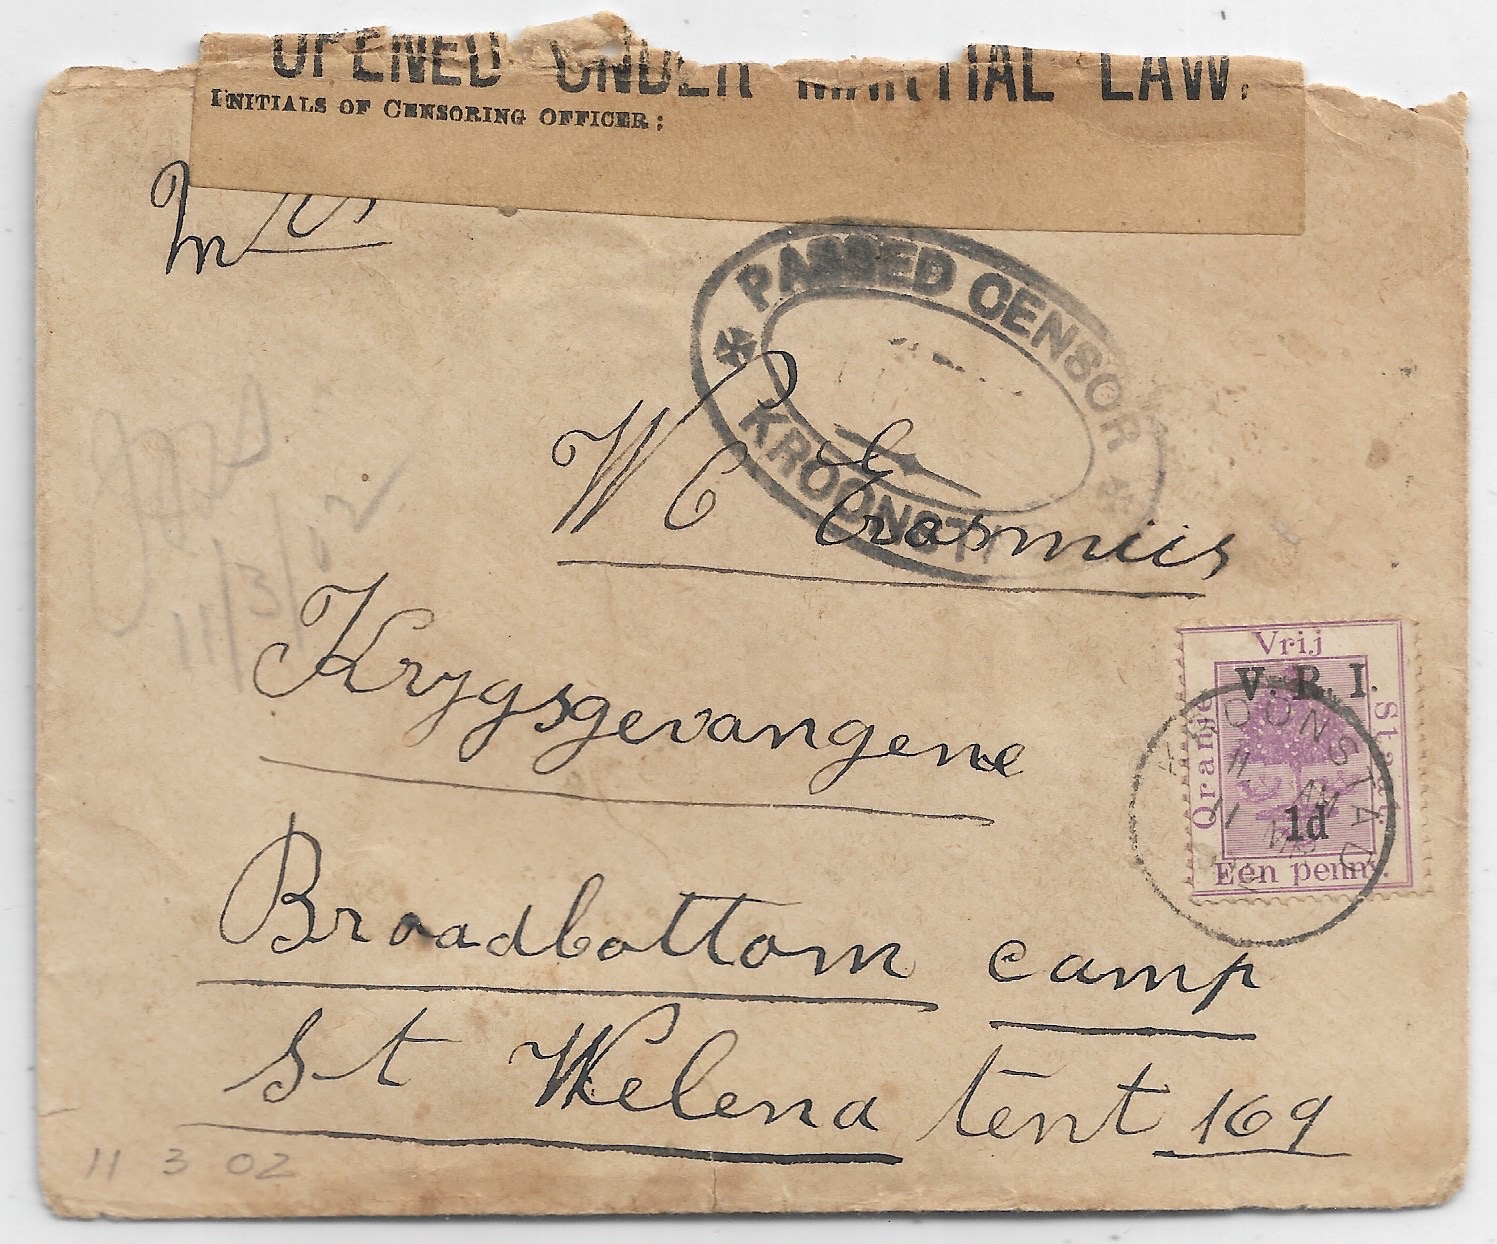 OPENED UNDER MARTIAL LAW.
INITIALS OF CENSORING OFFICER:
Mrs
PASSED CENSOR
KROONST
W C Erasmus
11/3/02
Krygsgevangene
Vrij
V. R. I.
Oranje
Staat
1d
Een penny.
KROONSTAD
11 AM
11
Broadbottom camp
St Helena tent 169
11 3 02